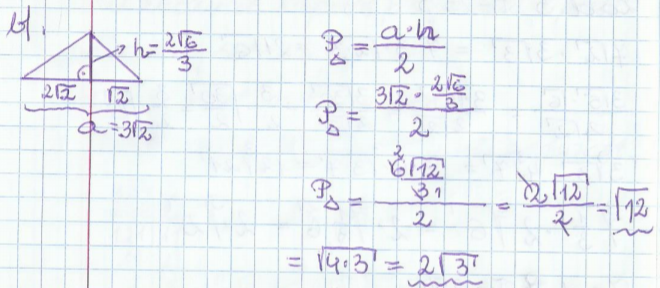 b).
h = 2√6/3
2√2 √2
a = 3√2
P△ = a·h/2
P△ = (3√2 · 2√6/3)/2
P△ = (²6√12/3₁)/2 = 2√12/2 = √12
= √4·3 = 2√3